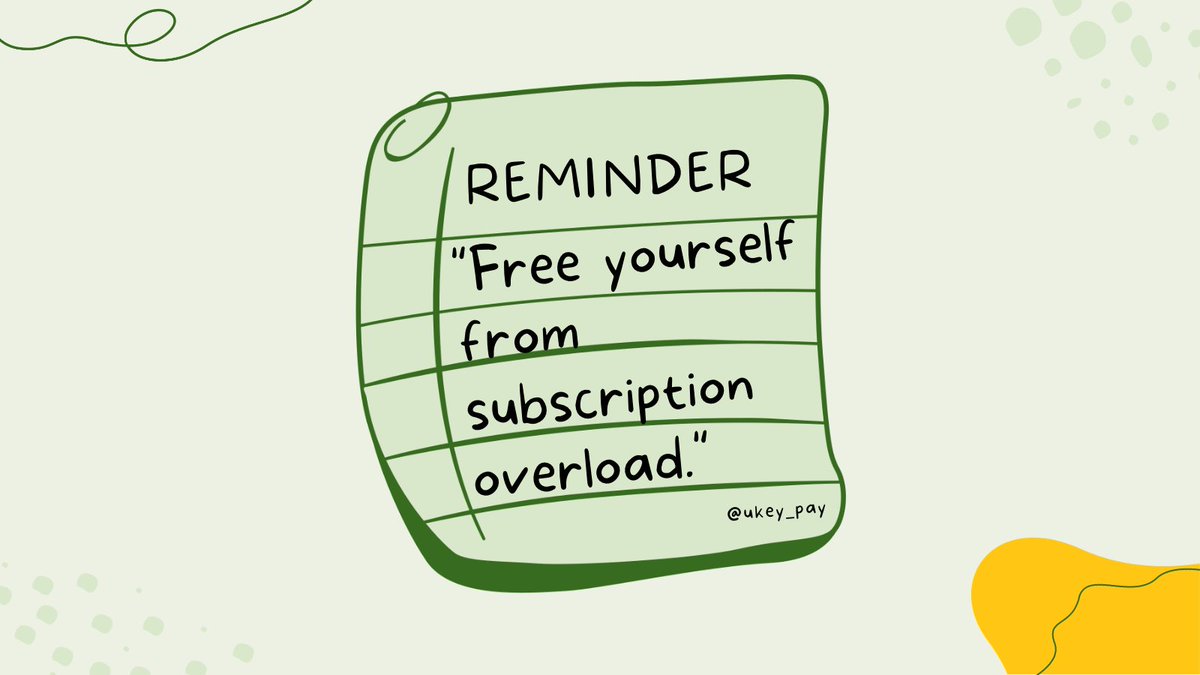 REMINDER
"Free yourself
from
subscription
overload."
@ukey_pay